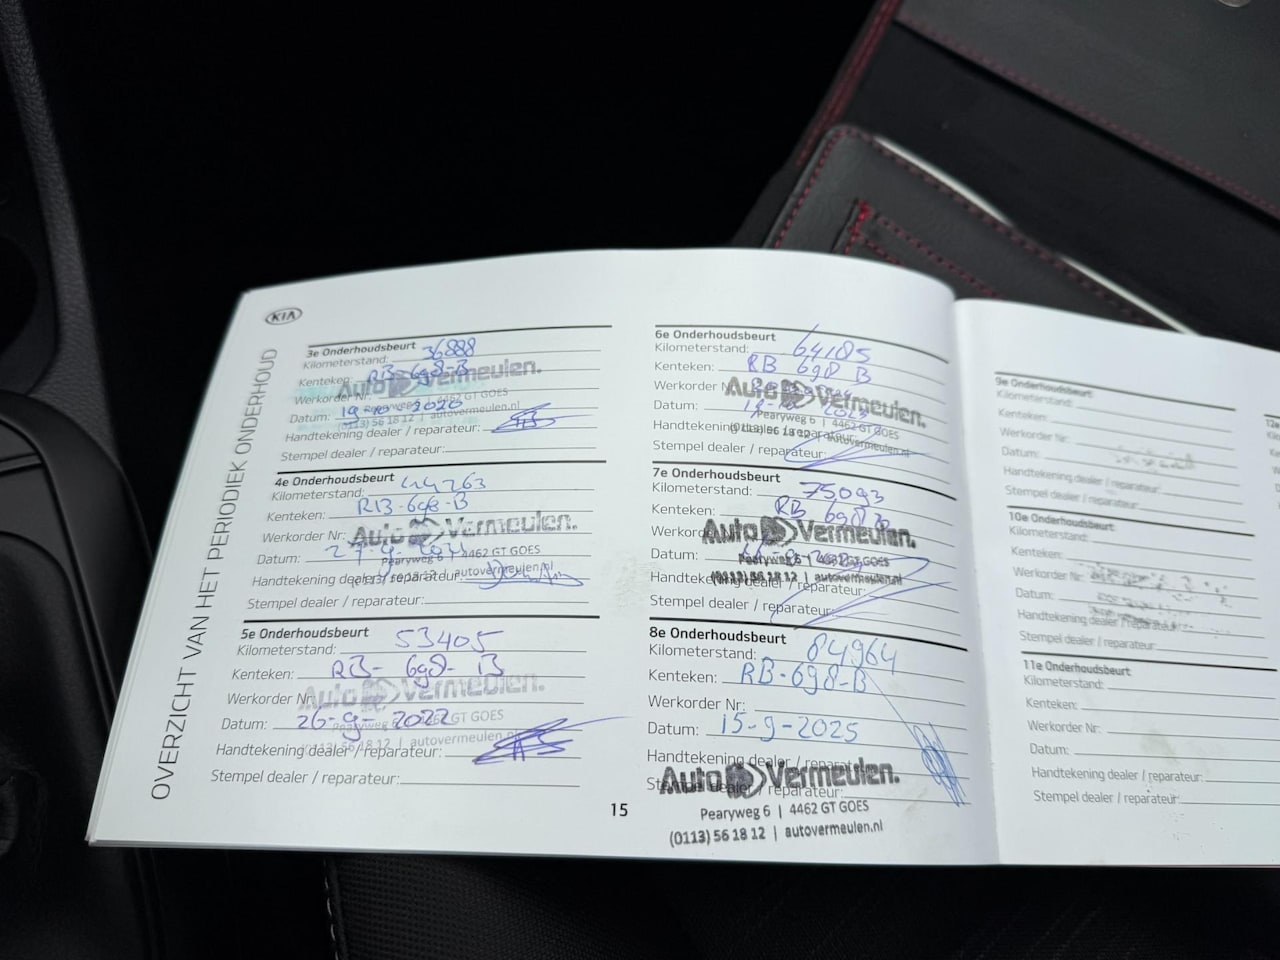 KIA
OVERZICHT VAN HET PERIODIEK ONDERHOUD
3e Onderhoudsbeurt
Kilometerstand: 36888
Kenteken: RB-698-B
Werkorder Nr.:
Auto Vermeulen.
Datum: 2020
Pearyweg 6 | 4462 GT GOES
(0113) 56 18 12 | autovermeulen.nl
Handtekening dealer / reparateur:
Stempel dealer / reparateur:
4e Onderhoudsbeurt
Kilometerstand: 44263
Kenteken: RB-698-B
Werkorder Nr:
Auto Vermeulen.
Datum:
Pearyweg 6 | 4462 GT GOES
(0113) 56 18 12 | autovermeulen.nl
Handtekening dealer / reparateur:
Stempel dealer / reparateur:
5e Onderhoudsbeurt
Kilometerstand: 53405
Kenteken: RB-698-B
Werkorder Nr:
Auto Vermeulen.
Datum: 26-9-2022
Pearyweg 6 | 4462 GT GOES
(0113) 56 18 12 | autovermeulen.nl
Handtekening dealer / reparateur:
Stempel dealer / reparateur:
15
6e Onderhoudsbeurt
Kilometerstand: 64185
Kenteken: RB 698 B
Werkorder N
Auto Vermeulen.
Datum:
Pearyweg 6 | 4462 GT GOES
(0113) 56 18 12 | autovermeulen.nl
Handtekening dealer / reparateur:
Stempel dealer / reparateur:
7e Onderhoudsbeurt
Kilometerstand: 75093
Kenteken: RB 698 B
Werkor
Auto Vermeulen.
Datum:
Pearyweg 6 | 4462 GT GOES
(0113) 56 18 12 | autovermeulen.nl
Handtekening dealer / reparateur:
Stempel dealer / reparateur:
8e Onderhoudsbeurt
Kilometerstand: 84964
Kenteken: RB-698-B
Werkorder Nr:
Datum: 15-9-2025
Handtekening dealer / reparat
Stempel dealer / reparateur:
Auto Vermeulen.
Pearyweg 6 | 4462 GT GOES
(0113) 56 18 12 | autovermeulen.nl
9e Onderhoudsbeurt
Kilometerstand:
Kenteken:
Werkorder Nr:
Datum:
Handtekening dealer / reparateur:
Stempel dealer / reparateur:
10e Onderhoudsbeurt
Kilometerstand:
Kenteken:
Werkorder Nr:
Datum:
Handtekening dealer / reparateur:
Stempel dealer / reparateur:
11e Onderhoudsbeurt
Kilometerstand:
Kenteken:
Werkorder Nr:
Datum:
Handtekening dealer / reparateur:
Stempel dealer / reparateur:
12e